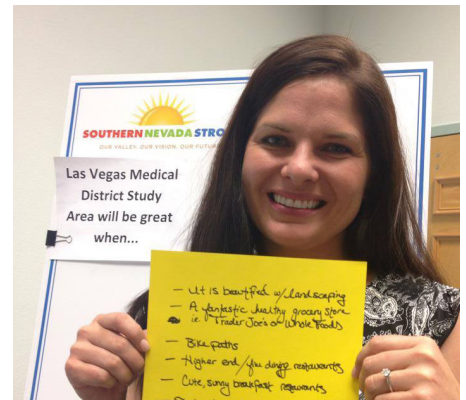 SOUTHERN NEVADA STRO
OUR VALLEY. OUR VISION. OUR FUTU
Las Vegas Medical
District Study
Area will be great
when...
- It is beautified w/ landscaping
- A fantastic healthy grocery store
ie. Trader Joe's or Whole Foods
- Bike paths
- Higher end / fine dining restaurants
- Cute, sunny breakfast restaurants